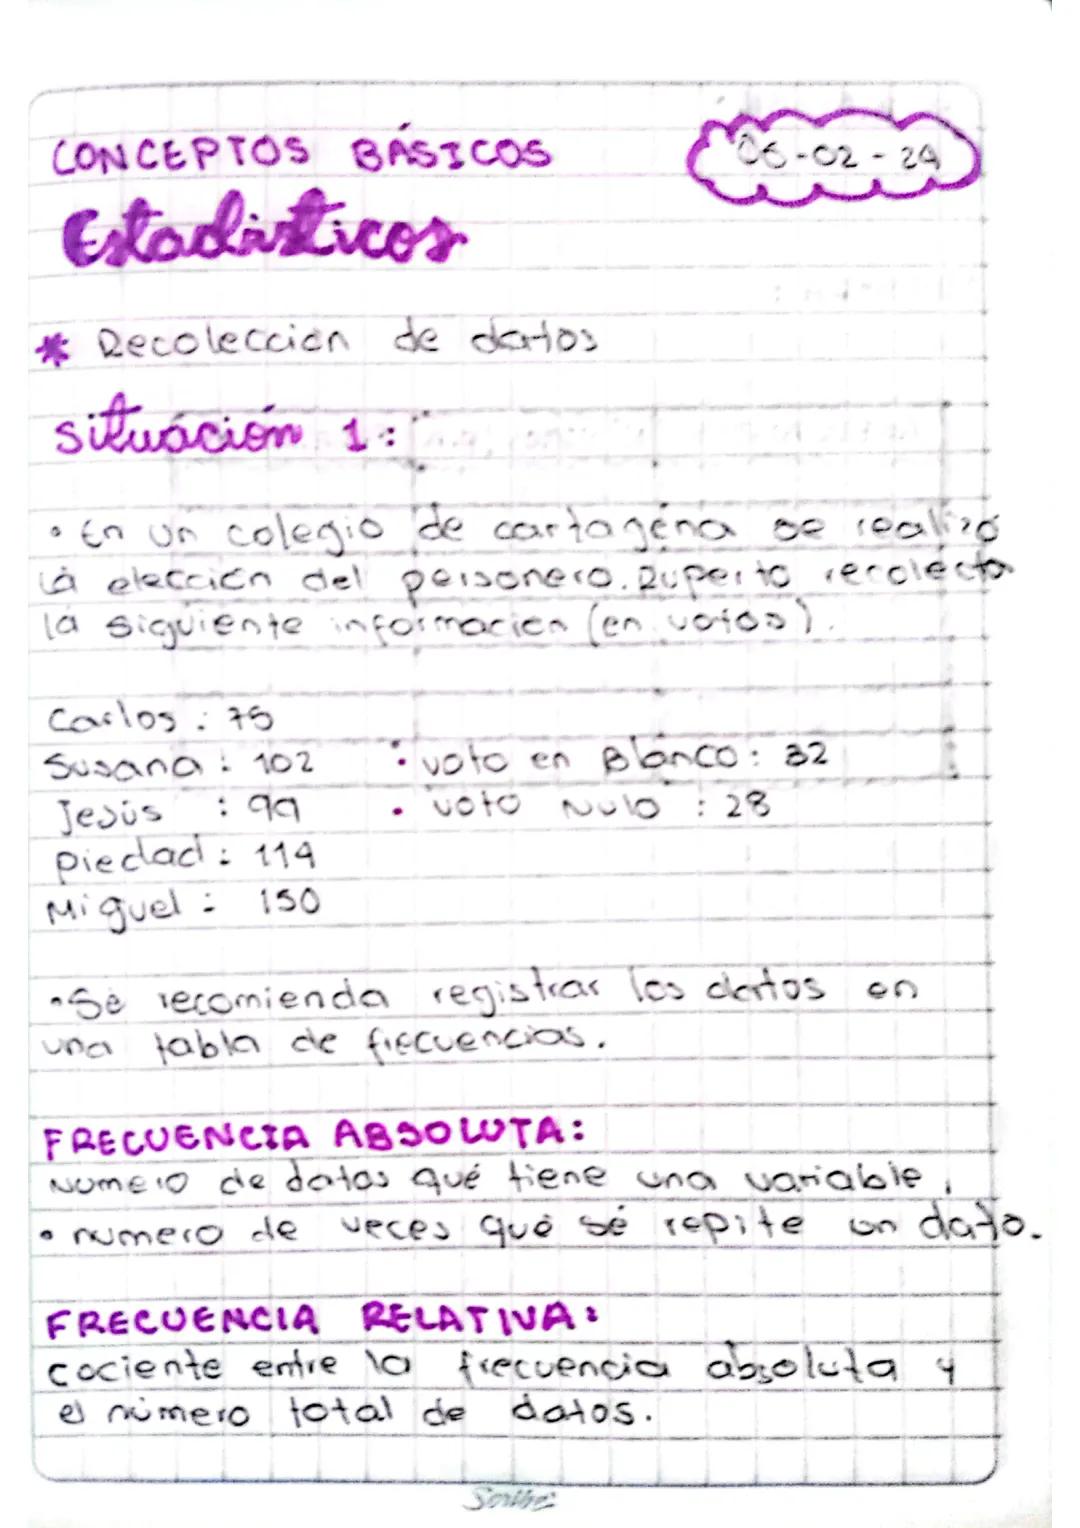 CONCEPTOS BÁSICOS
06-02-24
Estadísticos
* Recolección de datos
situación 1:
• En un colegio de cartagena se realizó
la elección del personero. Ruperto recolecta
la siguiente información (en votos).
Carlos : 75
Susana : 102 • voto en Blanco : 32
Jesús : 99 • voto Nulo : 28
Piedad : 114
Miguel : 150
• Se recomienda registrar los datos en
una tabla de frecuencias.
FRECUENCIA ABSOLUTA:
Numero de datos qué tiene una variable,
• numero de veces qué sé repite un dato.
FRECUENCIA RELATIVA:
cociente entre la frecuencia absoluta y
el número total de datos.
Scribe